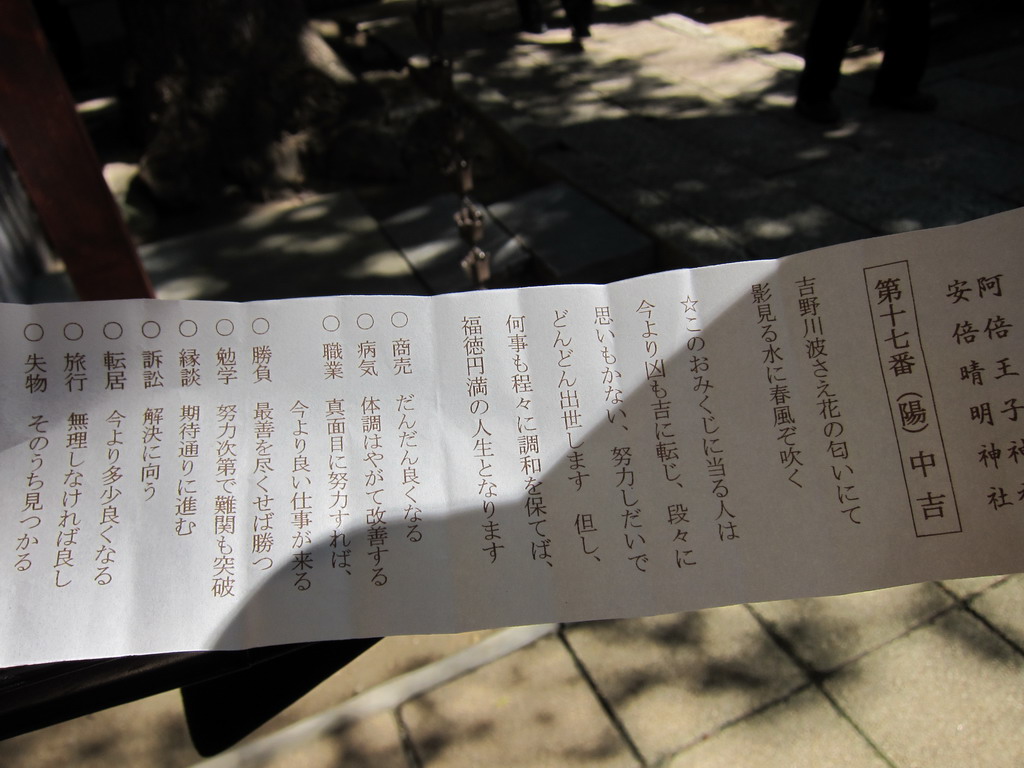 阿倍王子神社
安倍晴明神社
第十七番（陽）中吉
吉野川波さえ花の匂いにて
影見る水に春風ぞ吹く
☆このおみくじに当る人は
今より凶も吉に転じ、段々に
思いもかない、努力しだいで
どんどん出世します　但し、
何事も程々に調和を保てば、
福徳円満の人生となります
○商売　だんだん良くなる
○病気　体調はやがて改善する
○職業　真面目に努力すれば、
今より良い仕事が来る
○勝負　最善を尽くせば勝つ
○勉学　努力次第で難関も突破
○縁談　期待通りに進む
○訴訟　解決に向う
○転居　今より多少良くなる
○旅行　無理しなければ良し
○失物　そのうち見つかる